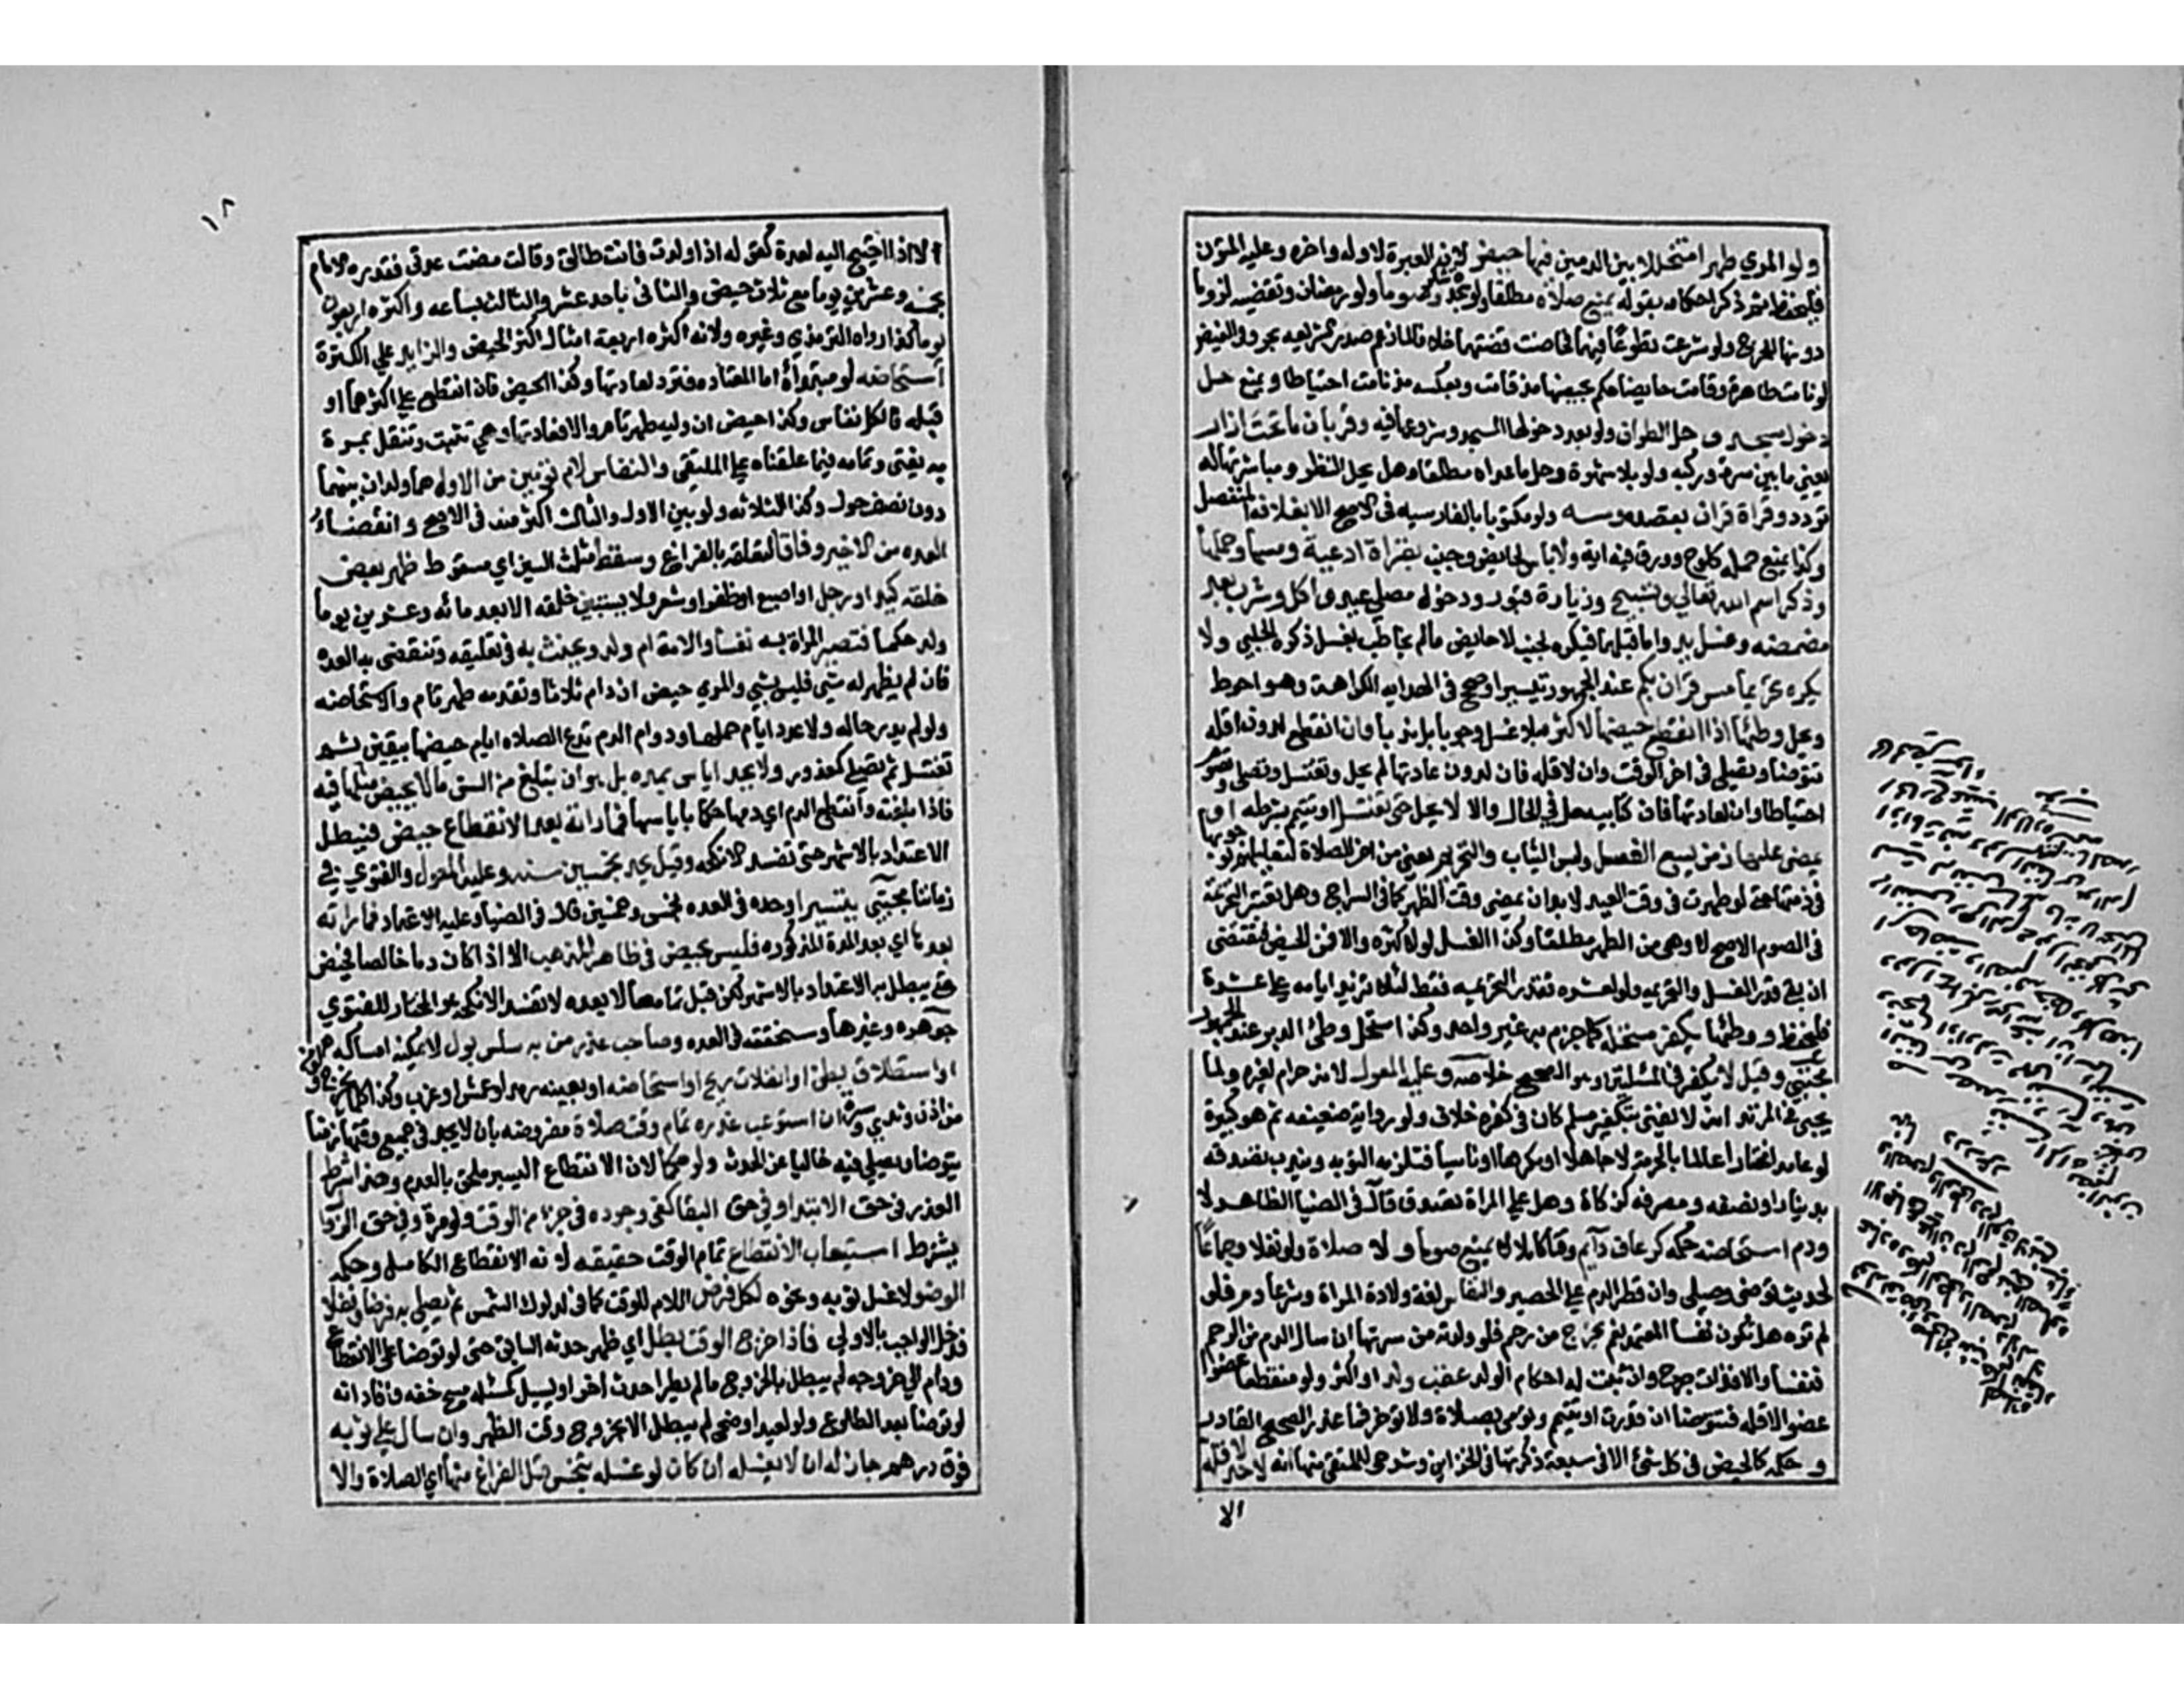 ولو المرئي طهرا متخللا بين الدمين فيها حيض لان العبرة لاوله واخره وعليه المتون
فليحفظ ثم ذكر احكامه بقوله يمنع صلاة مطلقا ولو سجدة شكر وصوما وجماعا وتقضيه لزوما
دونها للحرج ولو شرعت تطوعا فيهما فحاضت قضتهما خلافا لما زعمه صدر الشريعة بحر وفي الفيض
لو نامت طاهرة وقامت حايضا حكم بحيضها مذ قامت وبعكسه مذ نامت احتياطا ويمنع حل
دخول مسجد وحل الطواف ولو بعد دخولها المسجد وشروعها فيه وقربان ما تحت ازار
يعني ما بين سرة وركبه ولو بلا شهوة وحل ما عداه مطلقا وهل يحل النظر ومباشرتها له
تردد وقراة قران بقصده ومسه ولو مكتوبا بالفارسيه في الاصح الا بغلافه المنفصل
وكذا يمنع حمله كلوح وورق فيه اية ولا باس لحايض وجنب بقراة ادعية ومسها وحملها
وذكر اسم الله تعالي وتسبيح وزيارة قبور ودخول مصلي عيد واكل وشرب بعد
مضمضه وغسل يد واما قبلهما فيكره لجنب لا حايض مالم يخاطب بغسل ذكره الحلبي ولا
يكره تحريما مس قران بكم عند الجمهور تيسيرا وصح في الهدايه الكراهة وهو احوط
ويحل وطئها اذا انقطع حيضها لاكثره بلا غسل وجوبا بل ندبا وان انقطع لدون اقله
تتوضا وتصلي في اخر الوقت وان لاقله فان لدون عادتها لم يحل وتغتسل وتصلي وتصوم
احتياطا وان لعادتها فان كتابيه حل في الحال والا لا يحل حتى تغتسل او تتيمم بشرطه او
يمضي عليها زمن يسع الغسل ولبس الثياب والتحريمه يعني من اخر الصلاة لتعليلهم بوجوبها
في ذمتها حتى لو طهرت في وقت العيد لابد ان يمضي وقت الظهر كما في السراج وهل تعتبر التحريمة
في الصوم الاصح لا وهي من الطهر مطلقا وكذا الغسل لو لاكثره والا فمن الحيض فتقضي
ان بقي قدر الغسل والتحريمه ولو لعشره فقدر التحريميه فقط لئلا تزيد ايامه علي عشرة
فليحفظ ووطئها يكفر مستحله كما جزم به غير واحد وكذا مستحل وطئ الدبر عند الجمهور
مجتبي وقيل لا يكفر في المسئلتين وهو الصحيح خلاصه وعليه المعول لانه حرام لغيره ولما
يجيئ في المرتد انه لا يفتي بتكفير مسلم كان في كفره خلاف ولو رواية ضعيفه ثم هو كبيرة
لو عامدا مختارا عالما بالحرمة لا جاهلا او مكرها او ناسيا فتلزمه التوبه ويندب تصدقه
بدينار او نصفه ومصرفه كزكاة وهل علي المراة تصدق قال في الضيا الظاهر لا
ودم استحاضه حكمه كرعاف دايم وقتا كاملا لا يمنع صوما ولا صلاة ولو نفلا وجماعا
لحديث توضئي وصلي وان قطر الدم علي الحصير والنفاس لغة ولادة المراة وشرعا دم فلو
لم تره هل تكون نفسا المعتمد نعم يخرج من رحم فلو ولدته من سرتها ان سال الدم من الرحم
فنفسا والا فذات جرح وان ثبت له احكام الولد عقب ولد او اكثره ولو متقطعا عضوا
عضوا لا اقله فتتوضا ان قدرت او تتيمم وتومي بصلاة ولا توخر فما عذر الصحيح القادر
وحكمه كالحيض في كل شئ الا في سبعة ذكرتها في الخزاين وشرحي للملتقي منها انه لا حد لاقله
الا
١٨
الا اذا احتيج اليه لعدة كقوله اذا ولدت فانت طالق وقالت مضت عدتي فقدره الامام
بخمسه وعشرين يوما مع ثلاث حيض والثاني باحد عشر والثالث بساعه واكثره اربعون
يوما كذا رواه الترمذي وغيره ولانه اكثره اربعة امثال اكثر الحيض والزايد علي اكثره
استحاضه لو مبتداة اما المعتاده فترد لعادتها وكذا الحيض فان انقطع علي اكثرهما او
قبله فالكل نفاس وكذا حيض ان وليه طهر تام والا فعادتها وهي تثبت وتنتقل بمرة
به يفتي وتمامه فيما علقناه علي الملتقي والنفاس لام توئمين من الاول هما ولدان بينهما
دون نصف حول وكذا الثلاثه ولو بين الاول والثالث اكثر منه في الاصح وانقضاء
العده من الاخير وفاقا لتعلقه بالفراغ وسقط مثلث السين اي مسقوط ظهر بعض
خلقه كيد او رجل او اصبع او ظفر او شعر ولا يستبين خلقه الا بعد مائه وعشرين يوما
ولد حكما فتصير المراة به نفسا والامة ام ولد ويحنث به في تعليقه وتنقضي به العده
فان لم يظهر له شي فليس بشي والمرئي حيض ان دام ثلاثا وتقدمه طهر تام والا استحاضه
ولو لم يدر حاله ولا عدد ايام حملها ودوام الدم تدع الصلاه ايام حيضها بيقين ثم
تغتسل ثم تصلي كمعذور ولا يحد اياس بمده بل هو ان تبلغ من السن ما لا يحيض مثلها فيه
فاذا بلغته وانقطع الدم اي دمها حكم باياسها فما راته بعد الانقطاع حيض فيبطل
الاعتداد بالاشهر حتى تفسد الانكحه وقيل يحد بخمسين سنه وعليه المعول والفتوي في
زماننا مجتبي تيسيرا وحده في العده بخمس وخمسين قال في الضيا وعليه الاعتماد فما راته
بعدها اي بعد المدة المذكوره فليس بحيض في ظاهر المذهب الا اذا كان دما خالصا فحيض
حتى يبطل به الاعتداد بالاشهر لكن قبل تمامها لا بعده لا تفسد الانكحه وهو المختار للفتوي
جوهره وغيرها وسنحققه في العده وصاحب عذر من به سلس بول لا يمكنه امساكه
او استطلاق بطن او انفلات ريح او استحاضه او بعينه رمد او عمش او غرب وكذا كل ما يخرج
من اذن وثدي وسرة ان استوعب عذره تمام وقت صلاة مفروضه بان لا يجد في جميع وقتها زمنا
يتوضا ويصلي فيه خاليا عن الحدث ولو حكما لان الانقطاع اليسير ملحق بالعدم وهذا شرط
العذر في حق الابتدا وفي حق البقا كفي وجوده في جزء من الوقت ولو مرة وفي حق الزوال
يشترط استيعاب الانقطاع تمام الوقت حقيقه لانه الانقطاع الكامل وحكمه
الوضو لا غسل ثوبه ونحوه لكل فرض اللام للوقت كما في لدلوك الشمس ثم يصلي به فرضا ونفلا
فدخل الواجب بالاولي فاذا خرج الوقت بطل اي ظهر حدثه السابق حتى لو توضا علي الانقطاع
ودام الي خروجه لم يبطل بالخروج ما لم يطرا حدث اخر او يسيل كمسئلة مسح خفه وافاد انه
لو توضا بعد الطلوع ولو لعيد او ضحي لم يبطل الا بخروج وقت الظهر وان سال علي ثوبه
فوق درهم جاز له ان لا يغسله ان كان لو غسله تنجس قبل الفراغ منها اي الصلاة والا